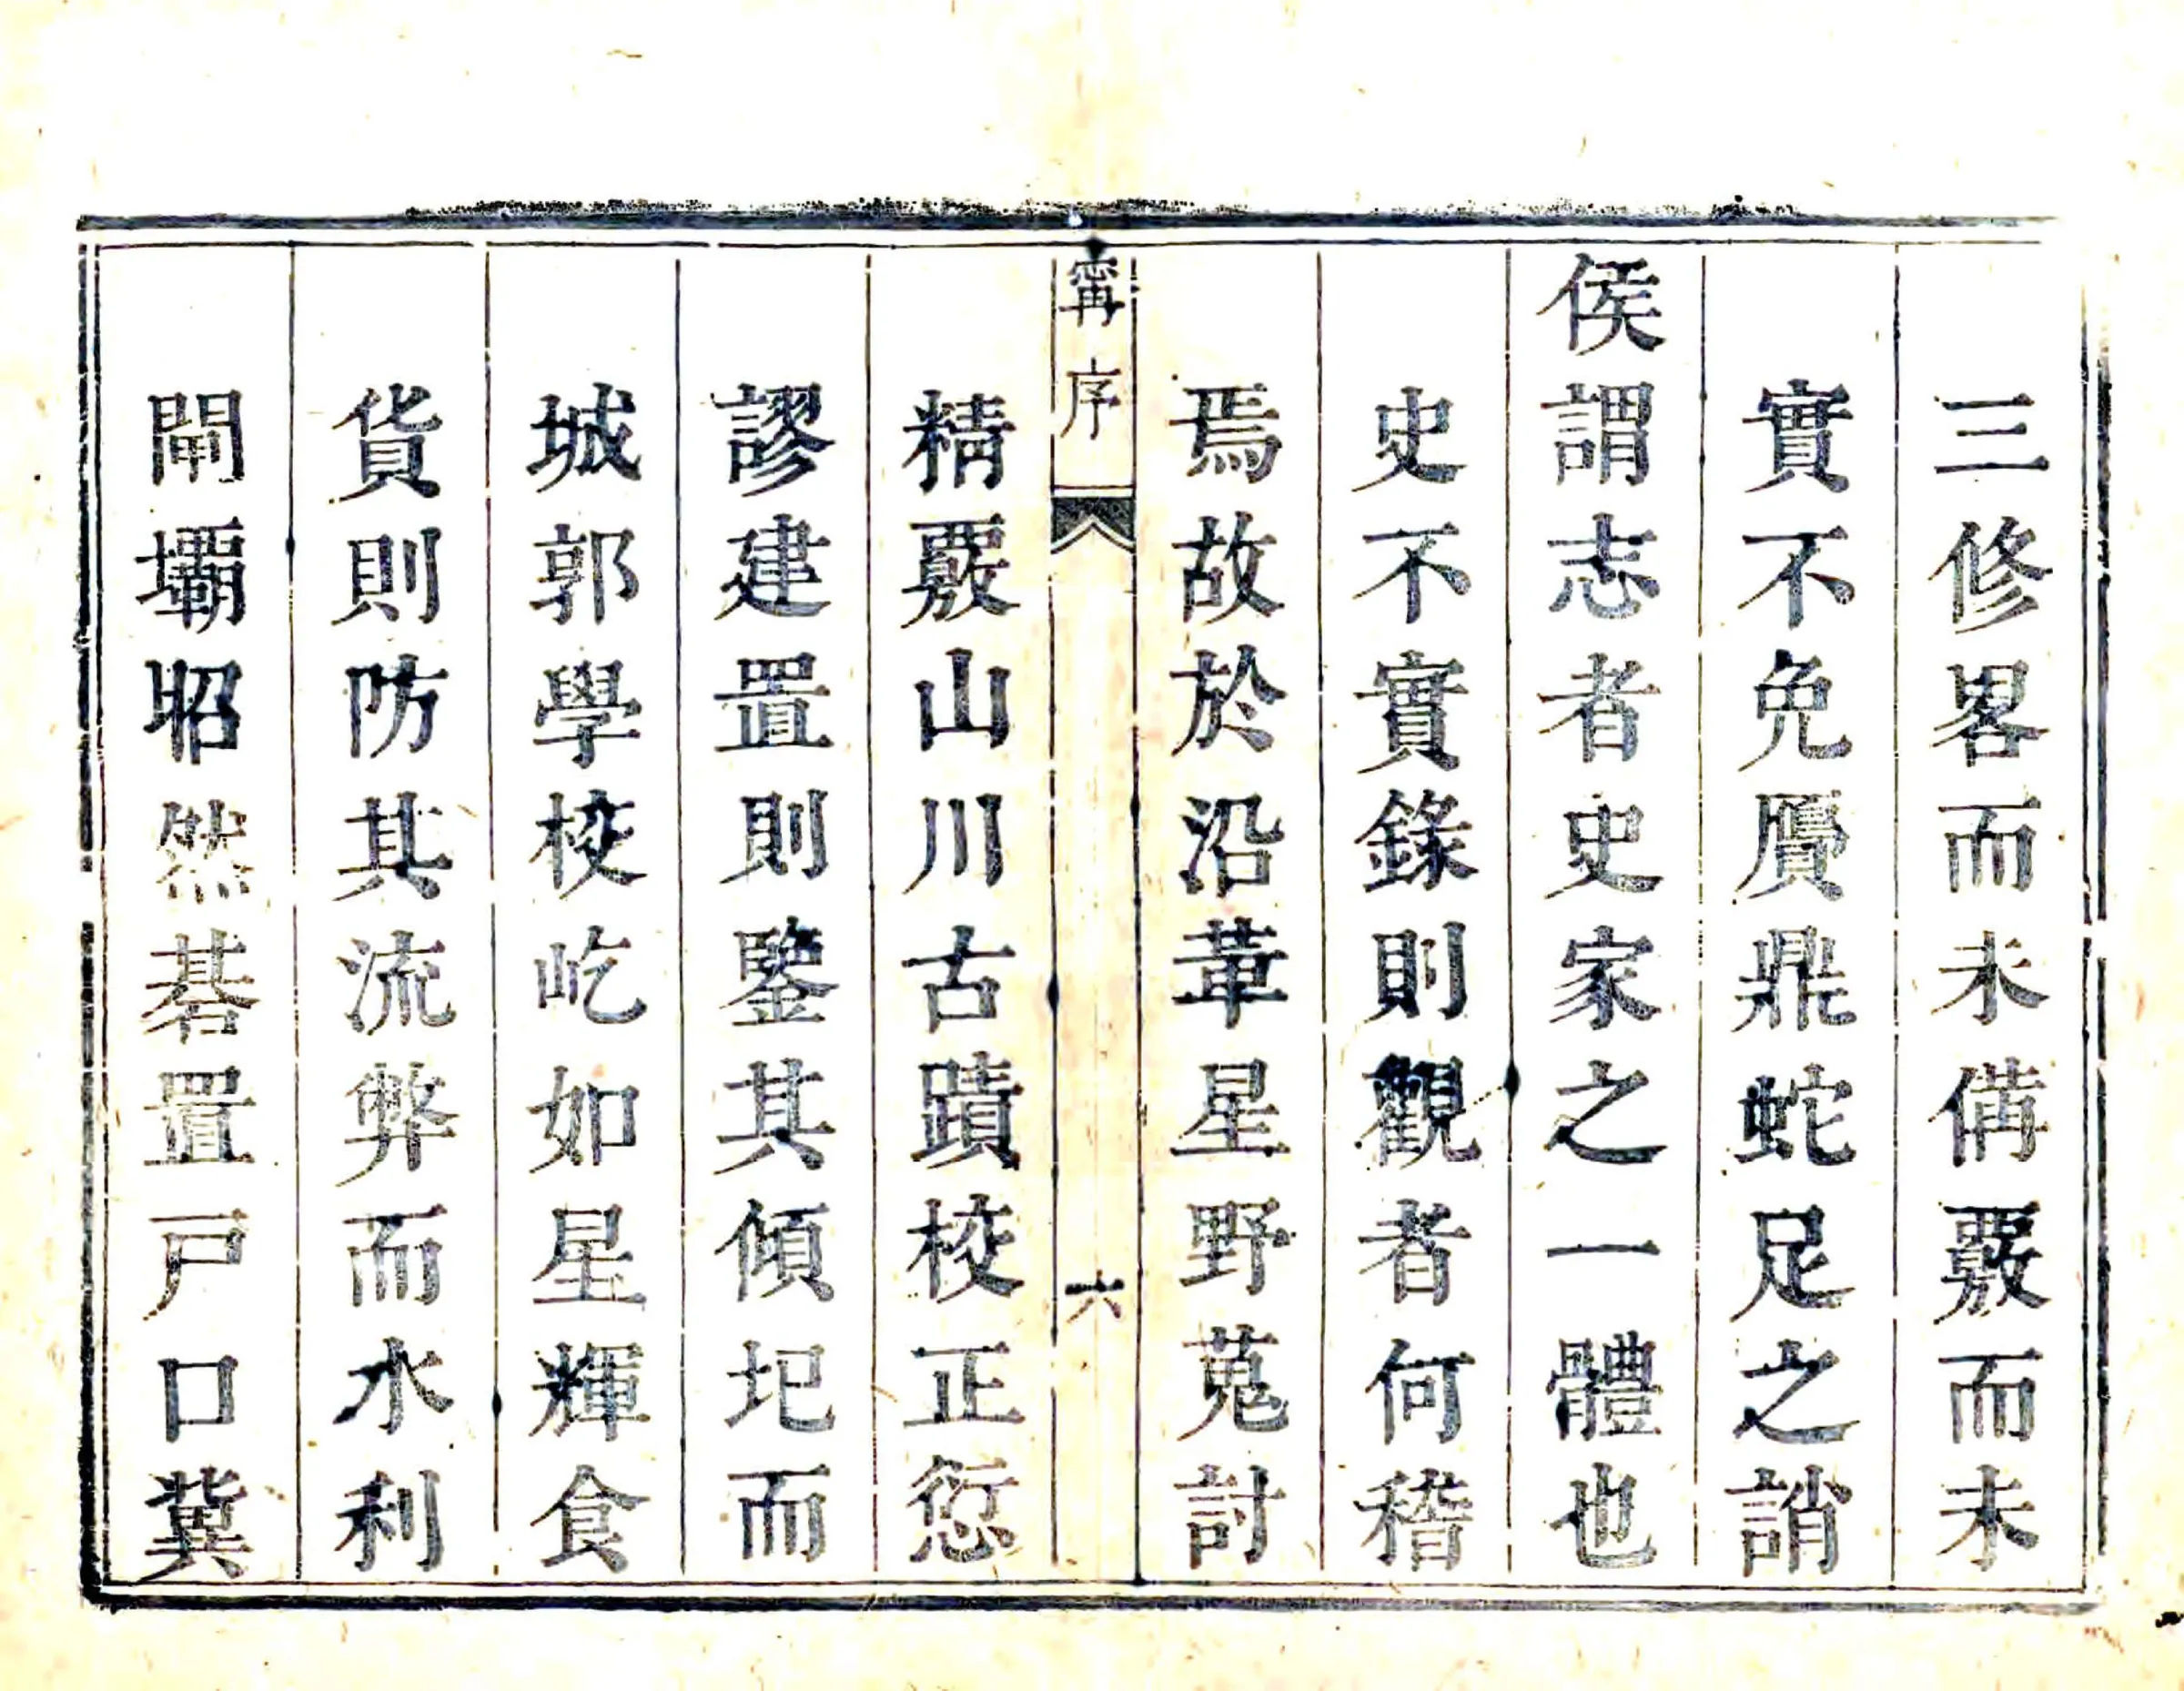 三修畧而未備覈而未
實不免贗鼎蛇足之誚
侯謂志者史家之一體也
史不實錄則觀者何稽
焉故於沿革星野蒐討
甯序 六
精覈山川古蹟校正愆
謬建置則鑒其傾圮而
城郭學校屹如星輝食
貨則防其流弊而水利
閘壩昭然碁置戸口冀